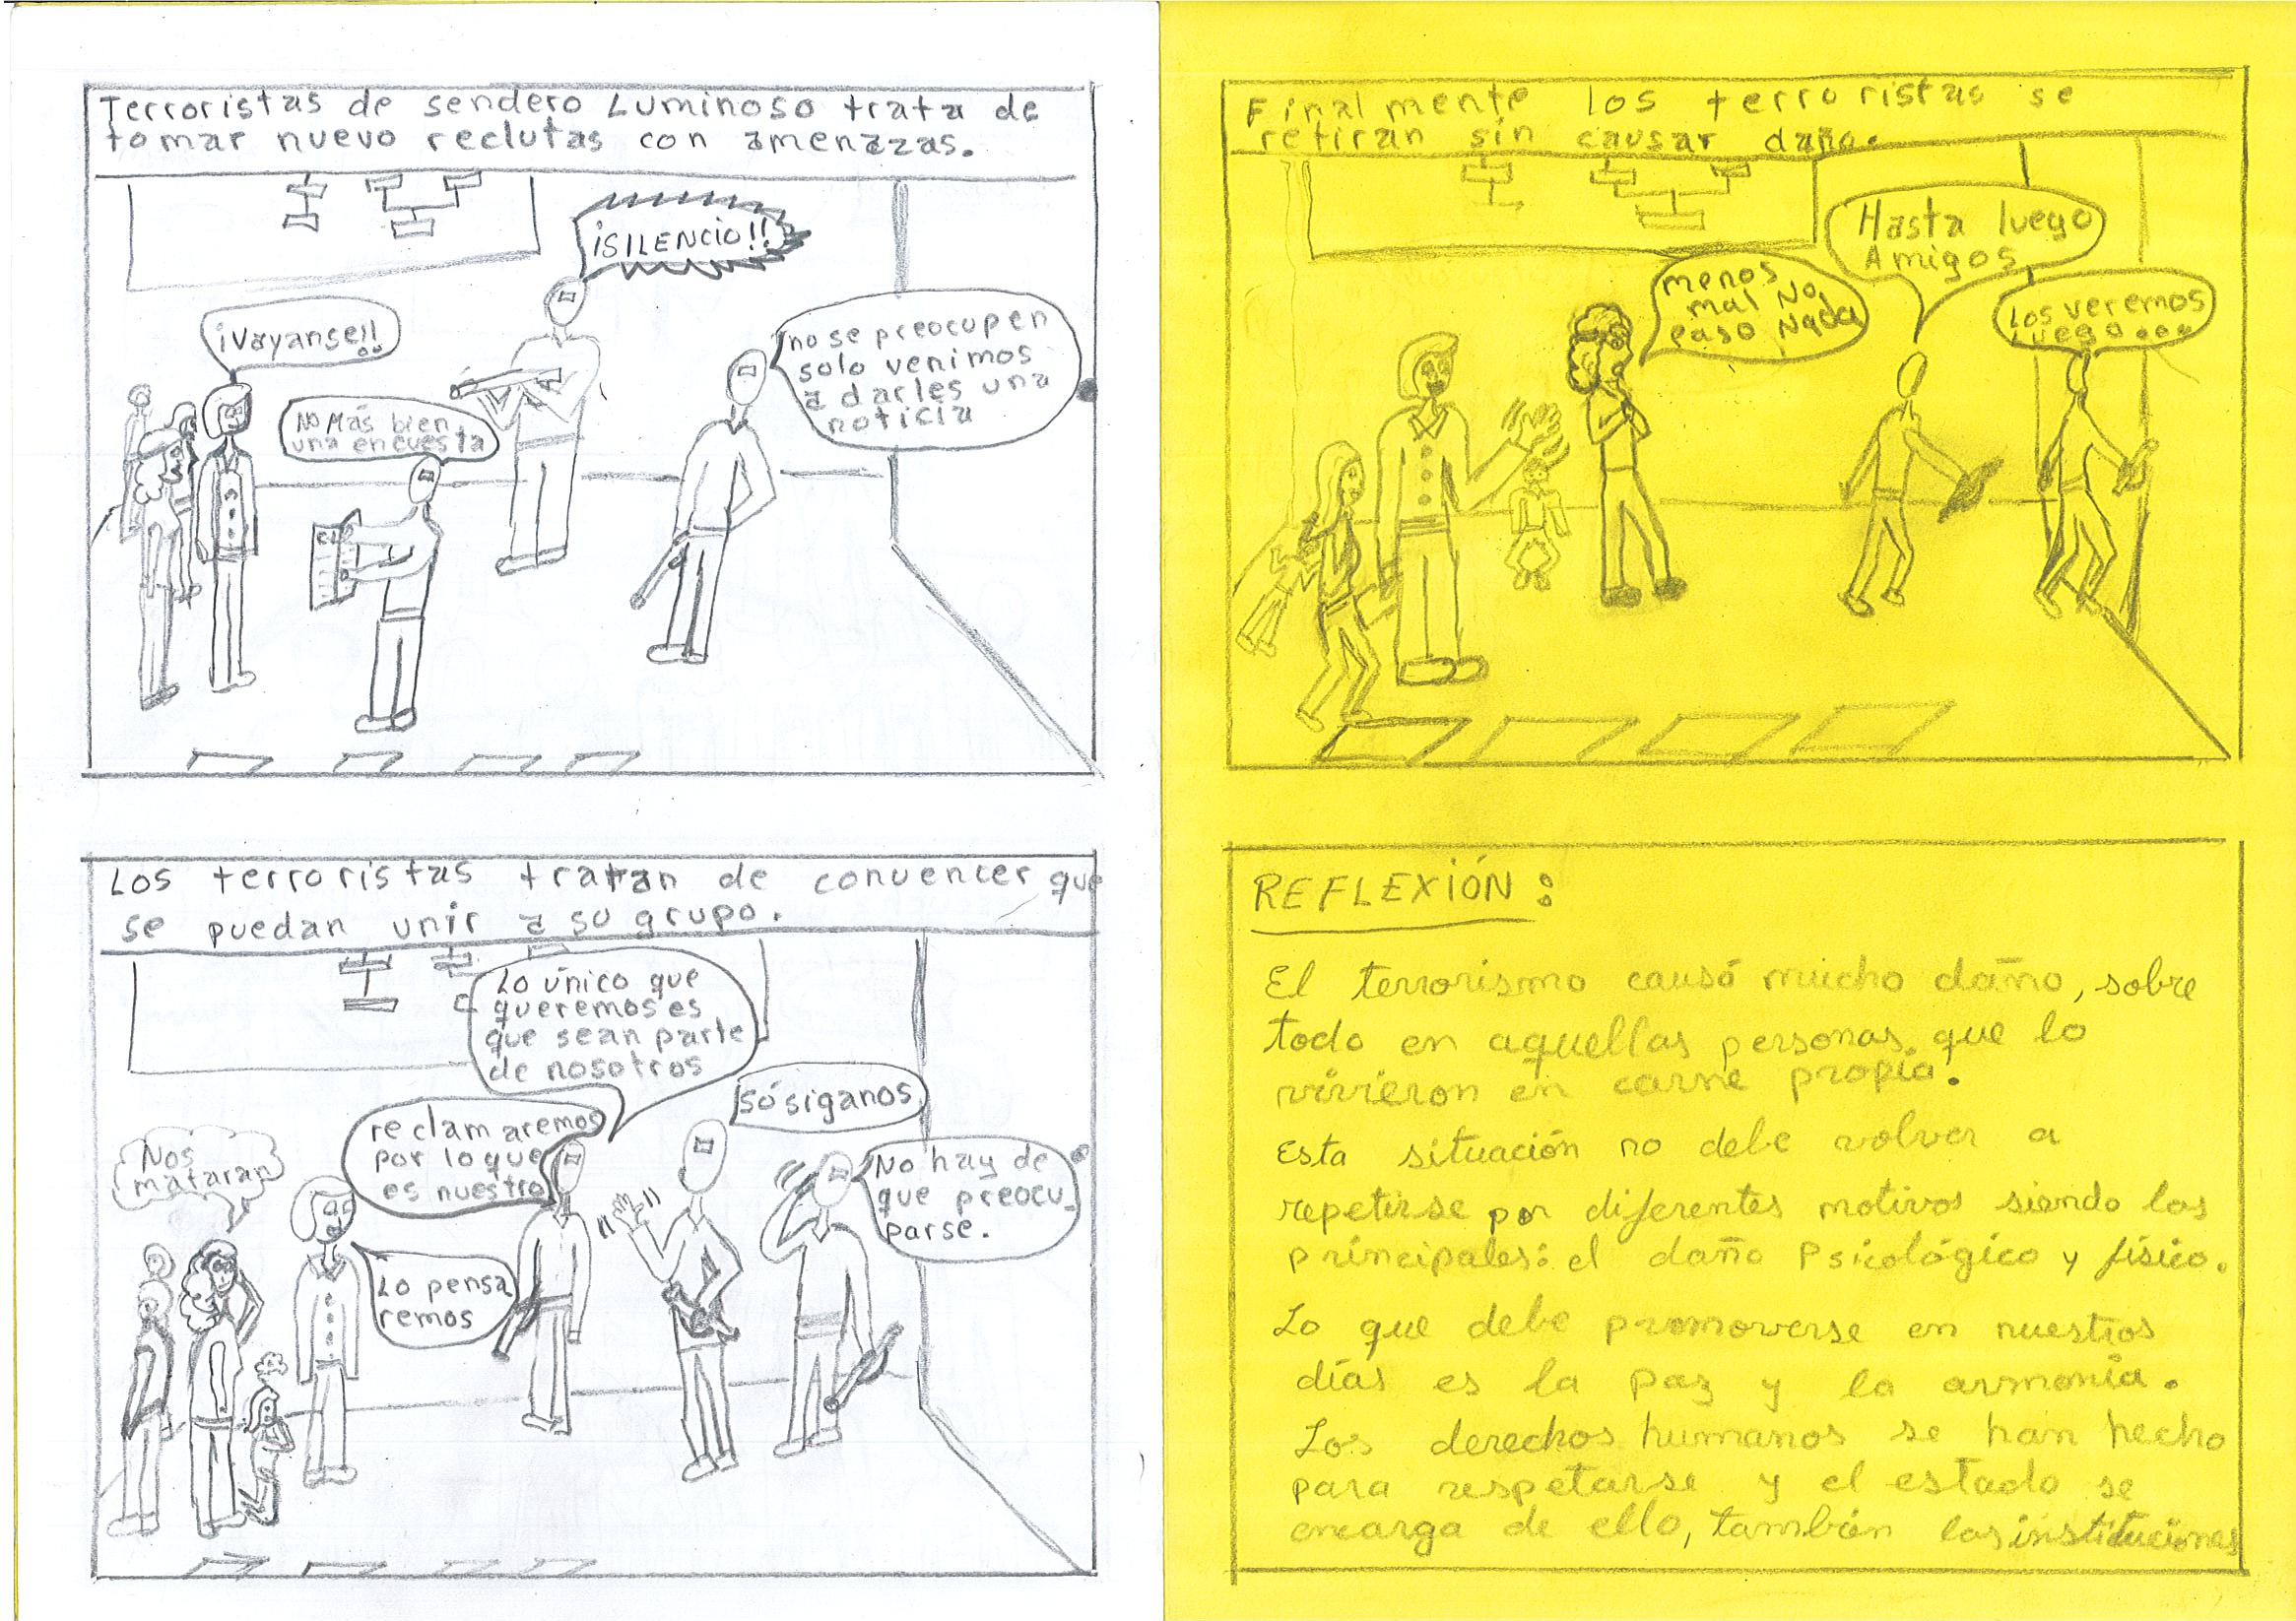 Terroristas de sendero Luminoso trata de
tomar nuevo reclutas con amenazas.
¡SILENCIO!!
¡Vayanse!!
No Más bien
una encuesta
no se preocupen
solo venimos
a darles una
noticia
Los terroristas tratan de convencer que
se puedan unir a su grupo.
Lo único que
queremos es
que sean parte
de nosotros
só siganos
reclamaremos
por lo que
es nuestro
Nos
mataran
No hay de
que preocu-
parse.
Lo pensa
remos
Finalmente los terroristas se
retiran sin causar daño.
Hasta luego
Amigos
menos
mal No
paso Nada
Los veremos
luego...
REFLEXIÓN:
El terrorismo causó mucho daño, sobre
todo en aquellas personas que lo
vivieron en carne propia.
Esta situación no debe volver a
repetirse por diferentes motivos siendo los
principales: el daño Psicológico y físico.
Lo que debe promoverse en nuestros
días es la paz y la armonía.
Los derechos humanos se han hecho
para respetarse y el estado se
encarga de ello, también las instituciones